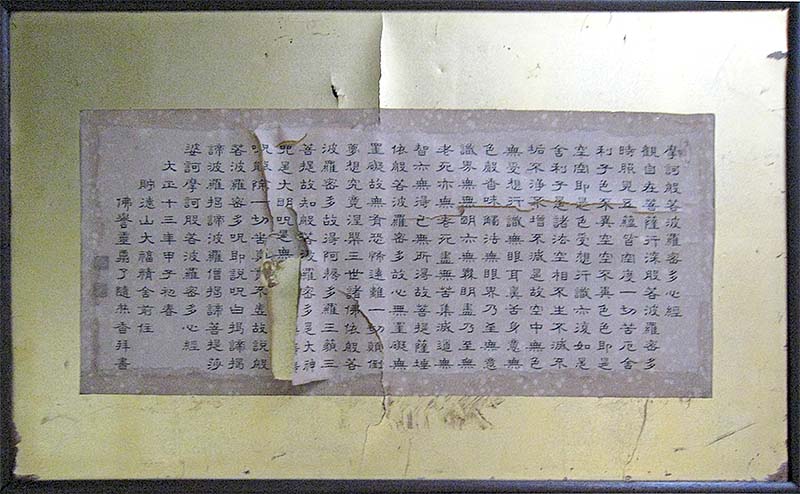 摩訶般若波羅蜜多心經
觀自在菩薩行深般若波羅蜜多
時照見五蘊皆空度一切苦厄舍
利子色不異空空不異色色即是
空空即是色受想行識亦復如是
舍利子是諸法空相不生不滅不
垢不淨不增不減是故空中無色
無受想行識無眼耳鼻舌身意無
色聲香味觸法無眼界乃至無意
識界無無明亦無無明盡乃至無
老死亦無老死盡無苦集滅道無
智亦無得已無所得故菩提薩埵
依般若波羅蜜多故心無罣礙無
罣礙故無有恐怖遠離一切顛倒
夢想究竟涅槃三世諸佛依般若
波羅蜜多故得阿耨多羅三藐三
菩提故知般若波羅蜜多是大神
呪是大明呪是無
呪能除一切苦真實不虛故說般
若波羅蜜多呪即說呪曰揭諦揭
諦波羅揭諦波羅僧揭諦菩提莎
婆訶摩訶般若波羅蜜多心經
大正十三年甲子初春
貯遠山大福精舍前住
佛誉靈了隨焚香拜書